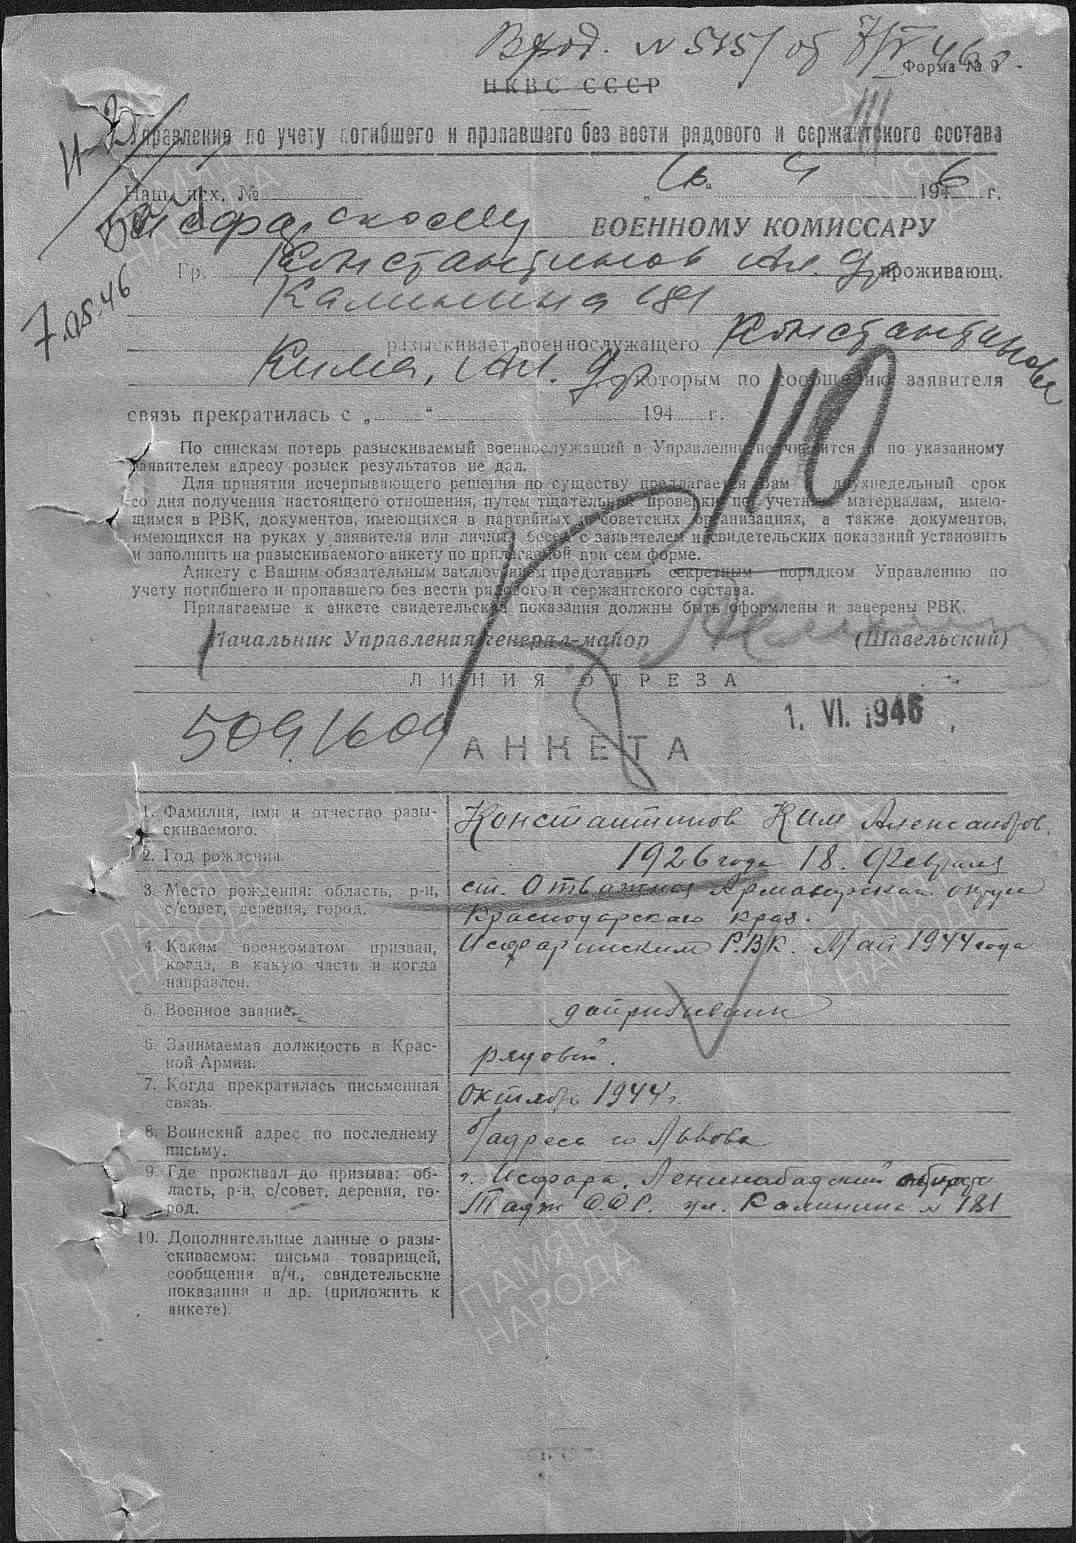 Вход. № 5151 об 7/V 46 г.
Форма № 9
НКВС СССР
Управление по учету погибшего и пропавшего без вести рядового и сержантского состава
Наш исх. № 194 6 г.
Исфаринскому ВОЕННОМУ КОМИССАРУ
7.05.46
Гр. Константинов Ал. др проживающ.
Калинина 181
разыскивает военнослужащего Константинова
Кима, Ал. др с которым по сообщению заявителя
связь прекратилась с „ “ 194 г.
110
По спискам потерь разыскиваемый военнослужащий в Управлении не числится и по указанному
заявителем адресу розыск результатов не дал.
Для принятия исчерпывающего решения по существу предлагается Вам в двухнедельный срок
со дня получения настоящего отношения, путем тщательной проверки по учетным материалам, имею-
щимся в РВК, документов, имеющихся в партийных и советских организациях, а также документов,
имеющихся на руках у заявителя или личных бесед с заявителем и свидетельских показаний установить
и заполнить на разыскиваемого анкету по прилагаемой при сем форме.
Анкету с Вашим обязательным заключением представить секретным порядком Управлению по
учету погибшего и пропавшего без вести рядового и сержантского состава.
Прилагаемые к анкете свидетельские показания должны быть оформлены и заверены РВК.
Начальник Управления генерал-майор (Шавельский)
ЛИНИЯ ОТРЕЗА
1. VI. 1946
509.1609
АНКЕТА
1. Фамилия, имя и отчество разы-
скиваемого.
Константинов Ким Александров.
2. Год рождения.
1926 года 18. Февраля
3. Место рождения: область, р-н,
с/совет, деревня, город.
ст. Отважная Армавирский округ
Краснодарского края.
4. Каким военкоматом призван,
когда, в какую часть и когда
направлен.
Исфаринским Р.В.К. Май 1944 года
5. Военное звание.
допризывник
6. Занимаемая должность в Крас-
ной Армии.
рядовой.
7. Когда прекратилась письменная
связь.
октябрь 1944 г.
8. Воинский адрес по последнему
письму.
б/адреса со Львова
9. Где проживал до призыва: об-
ласть, р-н, с/совет, деревня, го-
род.
г. Исфара, Ленинабадский
Тадж С.С.Р. ул. Калинина № 181
10. Дополнительные данные о разы-
скиваемом: письма товарищей,
сообщения в/ч., свидетельские
показания и др. (приложить к
анкете).
ПАМЯТЬ
НАРОДА